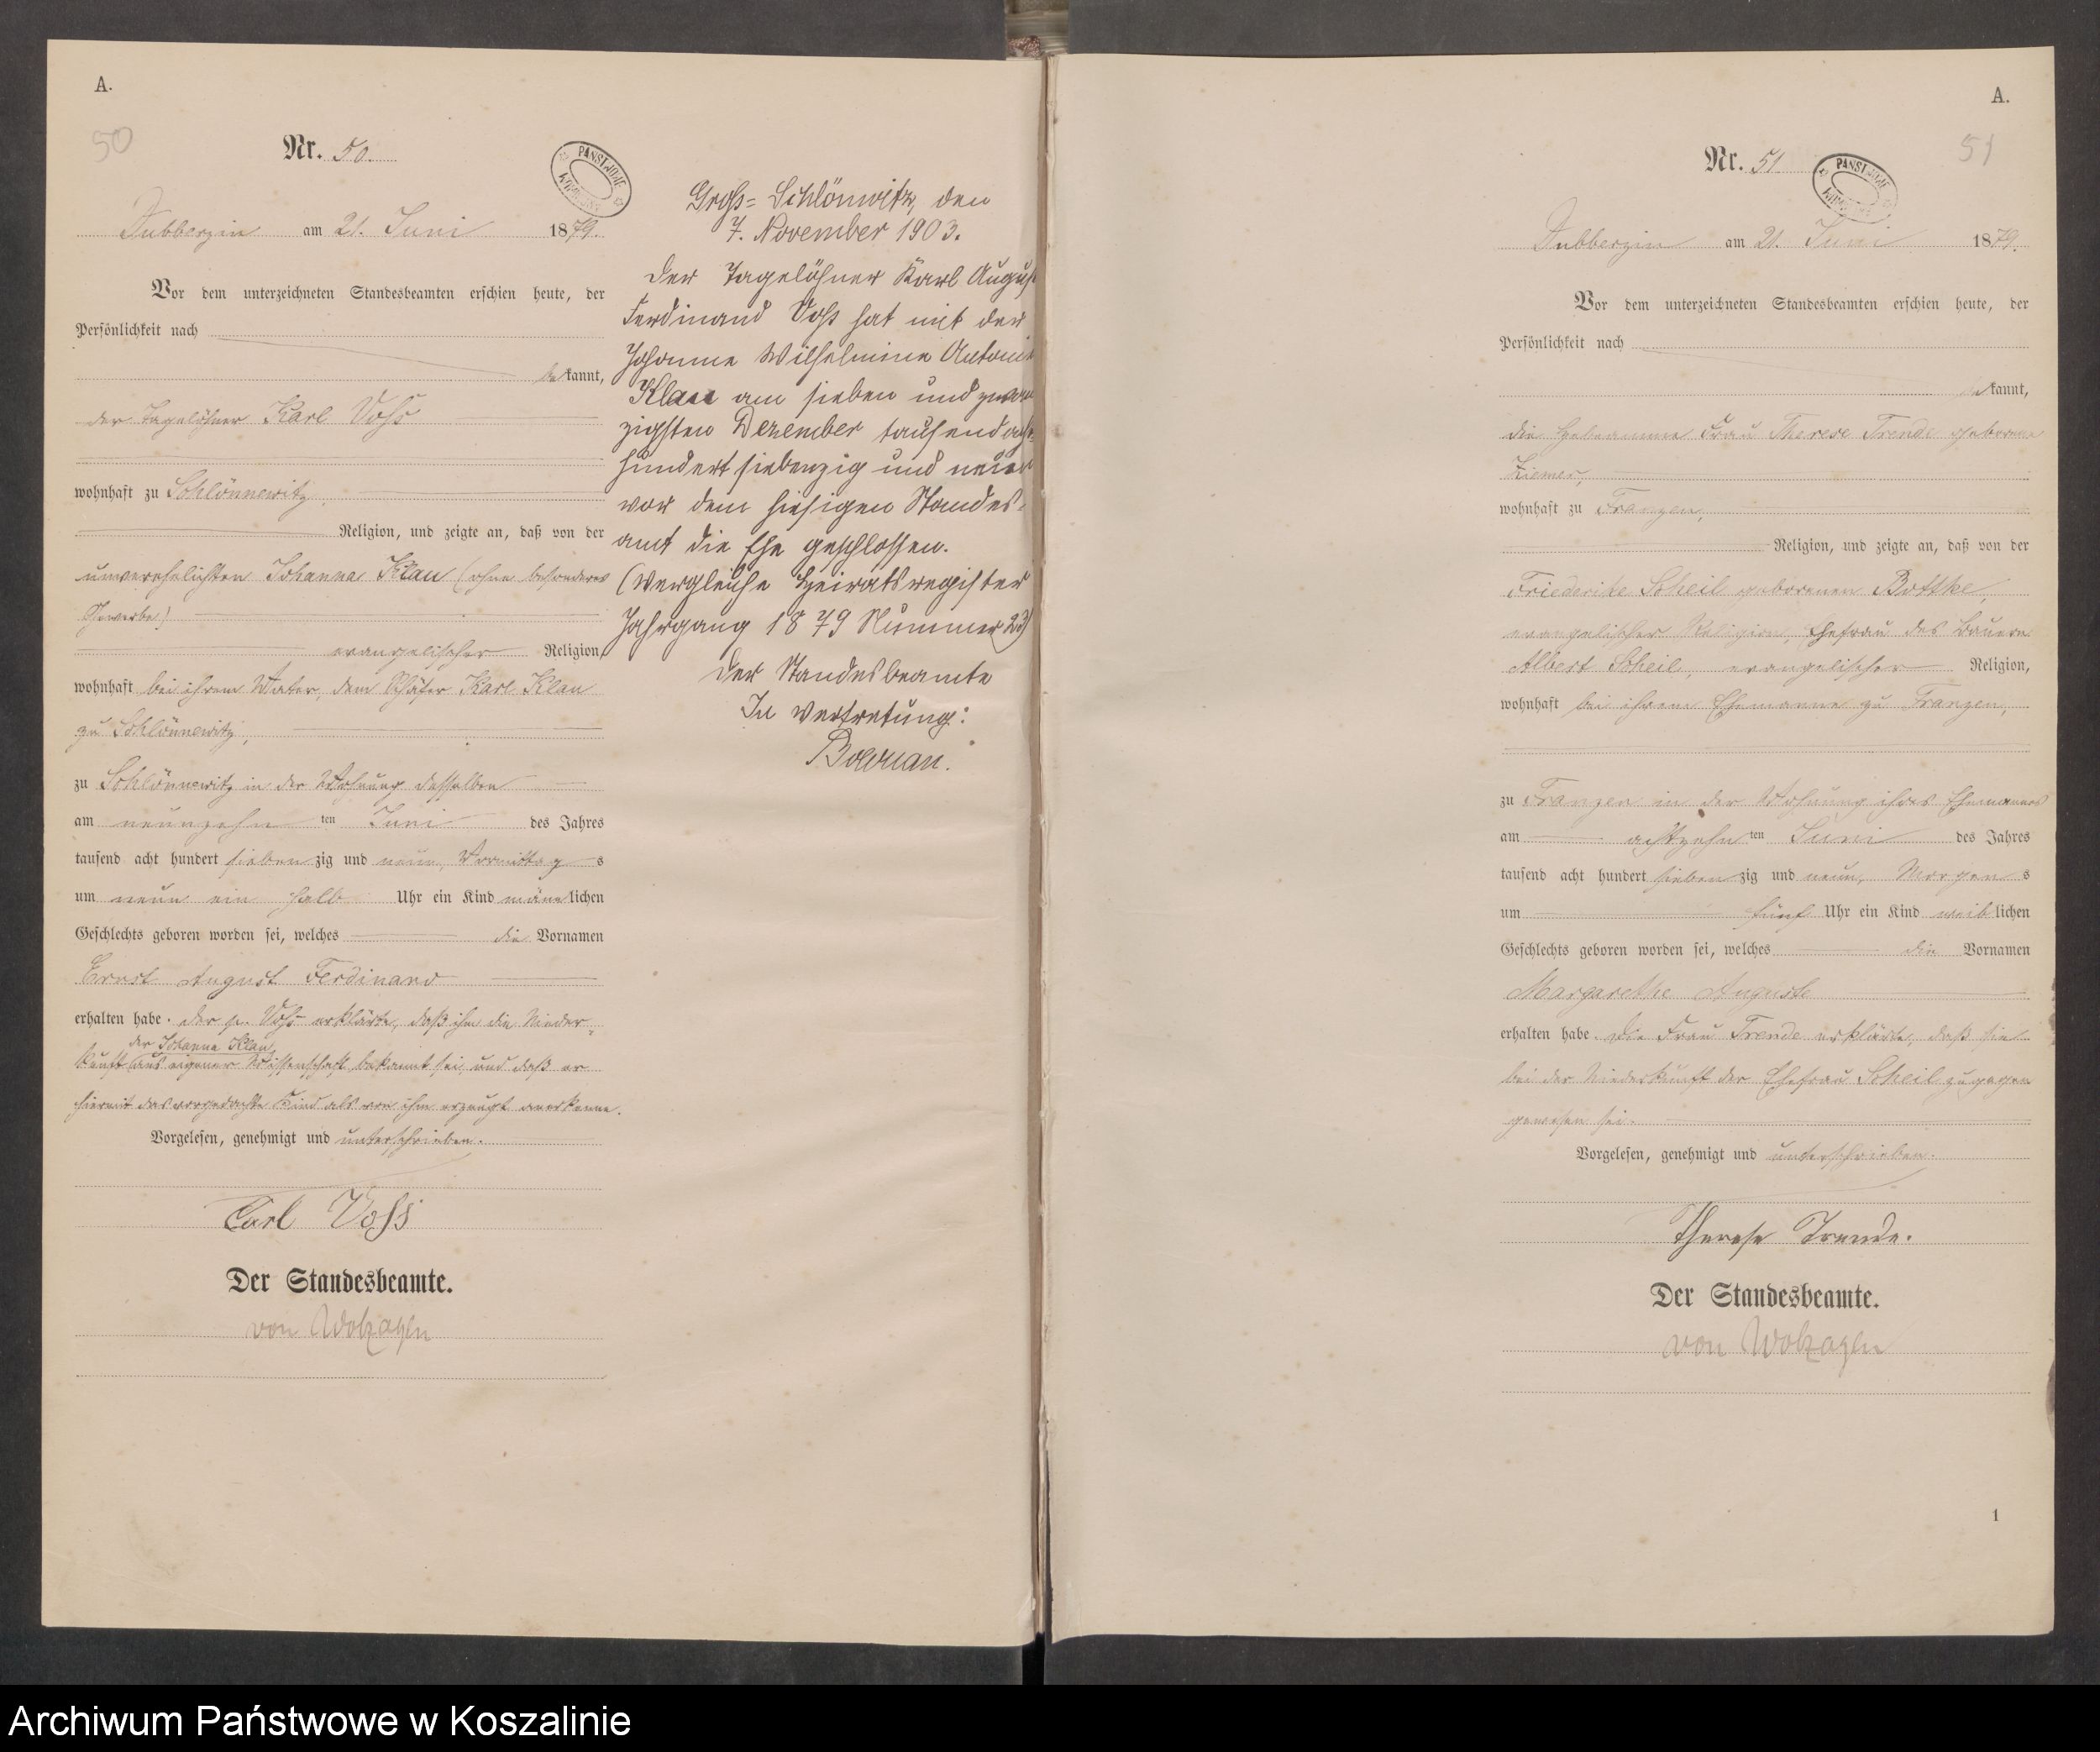 A.
50
Nr. 50.
Dubberzin am 21. Juni 1879.
Vor dem unterzeichneten Standesbeamten erschien heute, der
Persönlichkeit nach
bekannt,
der Tagelöhner Karl Voss
wohnhaft zu Schlönnewitz,
Religion, und zeigte an, daß von der
unverehelichten Johanna Klau (ohne besonderes
Gewerbe)
evangelischer Religion,
wohnhaft bei ihrem Vater, dem Schäfer Karl Klau
zu Schlönnewitz,
zu Schlönnewitz in der Wohnung desselben
am neunzehn ten Juni des Jahres
tausend acht hundert siebenzig und neun, Vormittags
um neun ein halb Uhr ein Kind männlichen
Geschlechts geboren worden sei, welches die Vornamen
Ernst August Ferdinand
erhalten habe. Der p. Voss erklärte, daß ihm die Nieder-
der Johanna Klau
kunft aus eigener Wissenschaft bekannt sei, und daß er
hiermit das vorgedachte Kind als von ihm erzeugt anerkenne.
Vorgelesen, genehmigt und unterschrieben.
Carl Voss
Der Standesbeamte.
von Wolzogen
Gross-Schlönwitz, den
7. November 1903.
Der Tagelöhner Karl August
Ferdinand Voss hat mit der
Johanne Wilhelmine Antonie
Klau am sieben und zwan
zigsten Dezember tausend acht
hundert siebenzig und neun
vor dem hiesigen Standes-
amt die Ehe geschlossen.
(Vergleiche Heiratsregister
Jahrgang 1879 Nummer 23)
Der Standesbeamte
In Vertretung:
A.
51
Nr. 51
Dubberzin am 21. Juni 1879.
Vor dem unterzeichneten Standesbeamten erschien heute, der
Persönlichkeit nach
bekannt,
die Hebeamme Frau Therese Trende geborene
Ziemer,
wohnhaft zu Franzen,
Religion, und zeigte an, daß von der
Friederike Scheil geborenen Bottke,
evangelischer Religion, Ehefrau des Bauern
Albert Scheil, evangelischer Religion,
wohnhaft bei ihrem Ehemanne zu Franzen,
zu Franzen in der Wohnung ihres Ehemannes
am achtzehn ten Juni des Jahres
tausend acht hundert siebenzig und neun, Morgens
um fünf Uhr ein Kind weiblichen
Geschlechts geboren worden sei, welches die Vornamen
Margarethe Auguste
erhalten habe. Die Frau Trende erklärte, daß sie
bei der Niederkunft der Ehefrau Scheil zugegen
gewesen sei.
Vorgelesen, genehmigt und unterschrieben.
Therese Trende.
Der Standesbeamte.
von Wolzogen
1
Archiwum Państwowe w Koszalinie